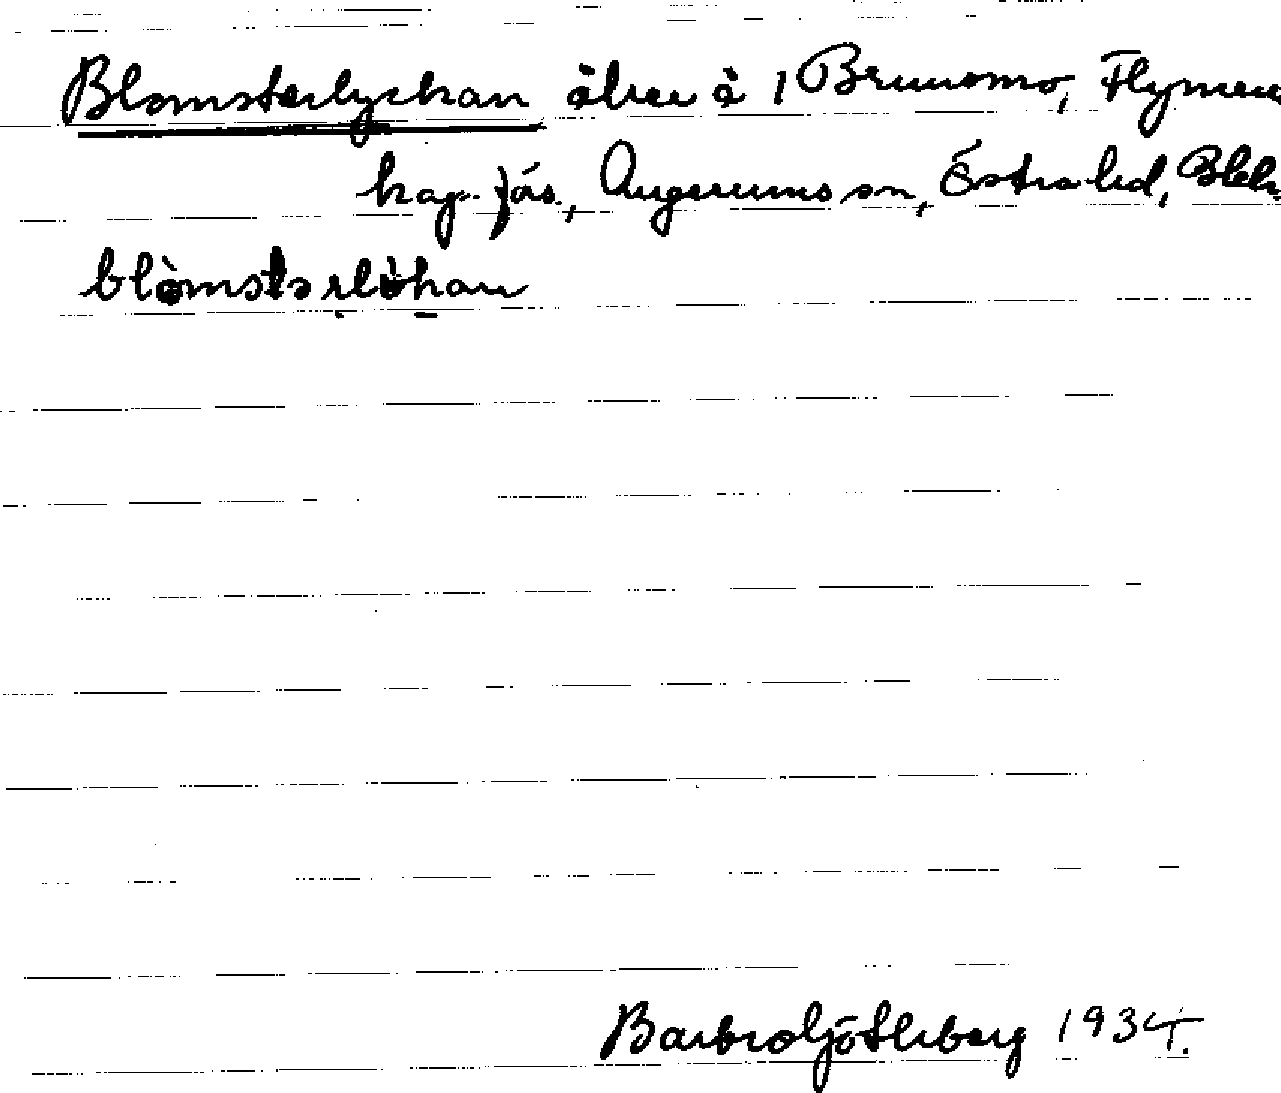 Blomsterlyckan åker å 1 Brunsmo, Flymen
kap. förs., Augerums sn, Östra hd, Blek
blòmstərlỳkan
Barbro Götherberg 1934.